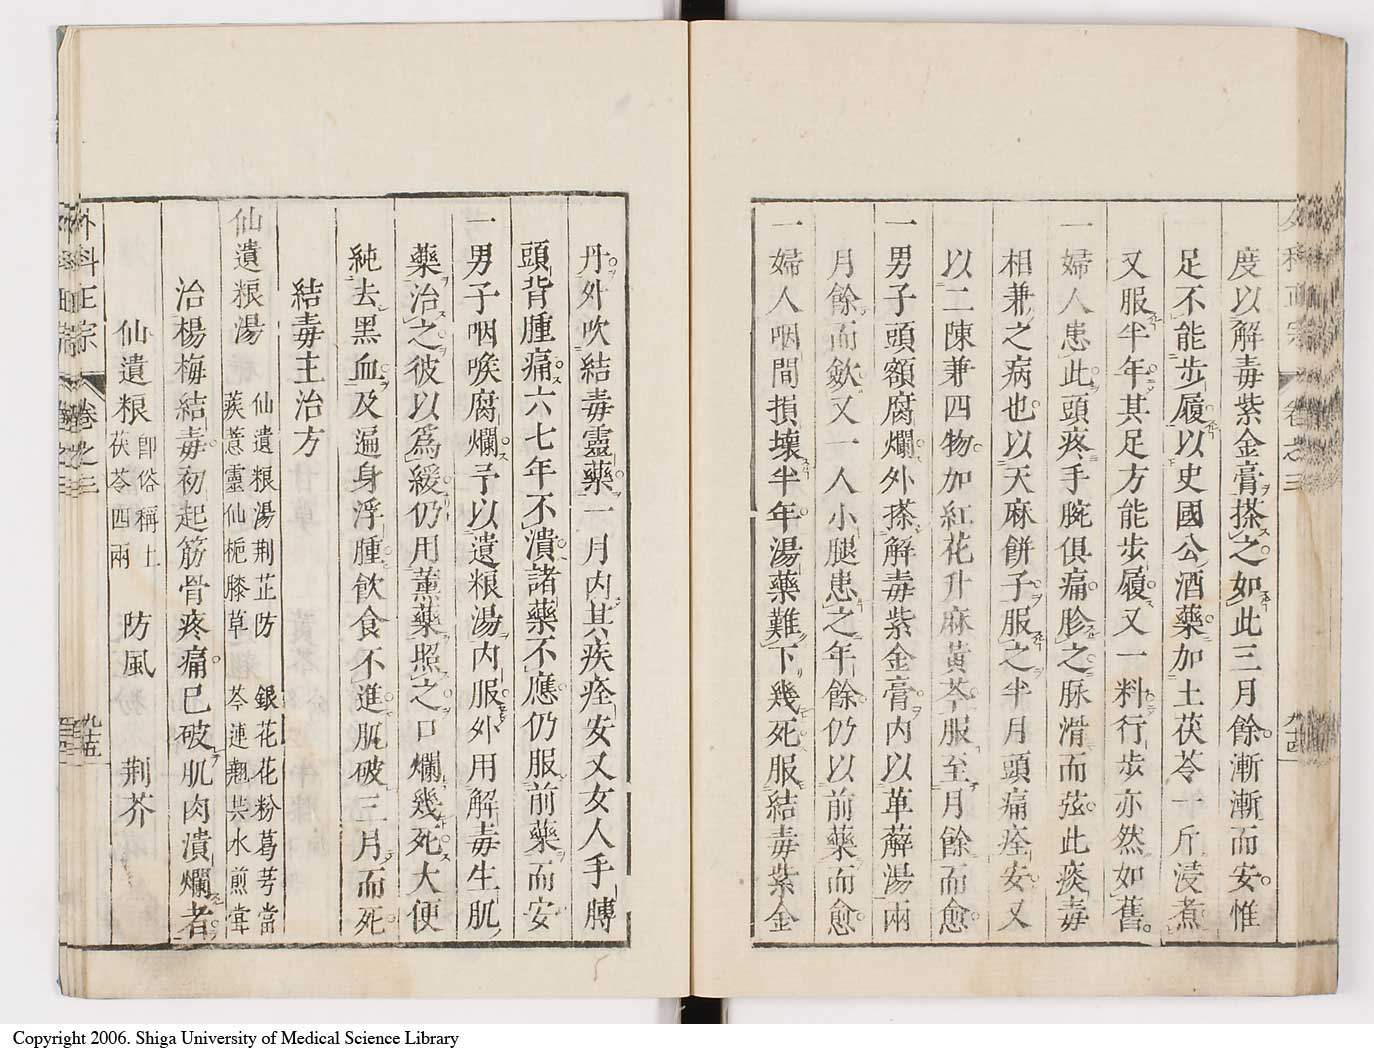 度以解毒紫金膏搽之如此三月餘漸漸而安惟
足不能步履以史國公酒藥加土茯苓一斤浸煮
又服半年其足方能步履又一料行步亦然如舊
一婦人患此頭疼手腕俱痛胗之脉滑而弦此痰毒
相兼之病也以天麻餅子服之半月頭痛痊安又
以二陳兼四物加紅花升麻黃芩服至月餘而愈
一男子頭額腐爛外搽解毒紫金膏内以萆薢湯兩
月餘而歛又一人小腿患之年餘仍以前藥而愈
一婦人咽間損壞半年湯藥難下幾死服結毒紫金
丹外吹結毒靈藥一月内其疾痊安又女人手膊
頭背腫痛六七年不潰諸藥不應仍服前藥而安
一男子咽喉腐爛予以遺粮湯内服外用解毒生肌
藥治之彼以爲緩仍用薰藥照之口爛幾死大便
純去黒血及遍身浮腫飲食不進肌破三月而死
結毒主治方
仙遺粮湯 仙遺粮湯荆芷防 銀花花粉葛芎當
蒺薏靈仙梔膝草 芩連翹共水煎嘗
治楊梅結毒初起筋骨疼痛已破肌肉潰爛者
仙遺粮 即俗稱土茯苓四兩 防風 荆芥
外科正宗 卷之三 九十五
Copyright 2006. Shiga University of Medical Science Library